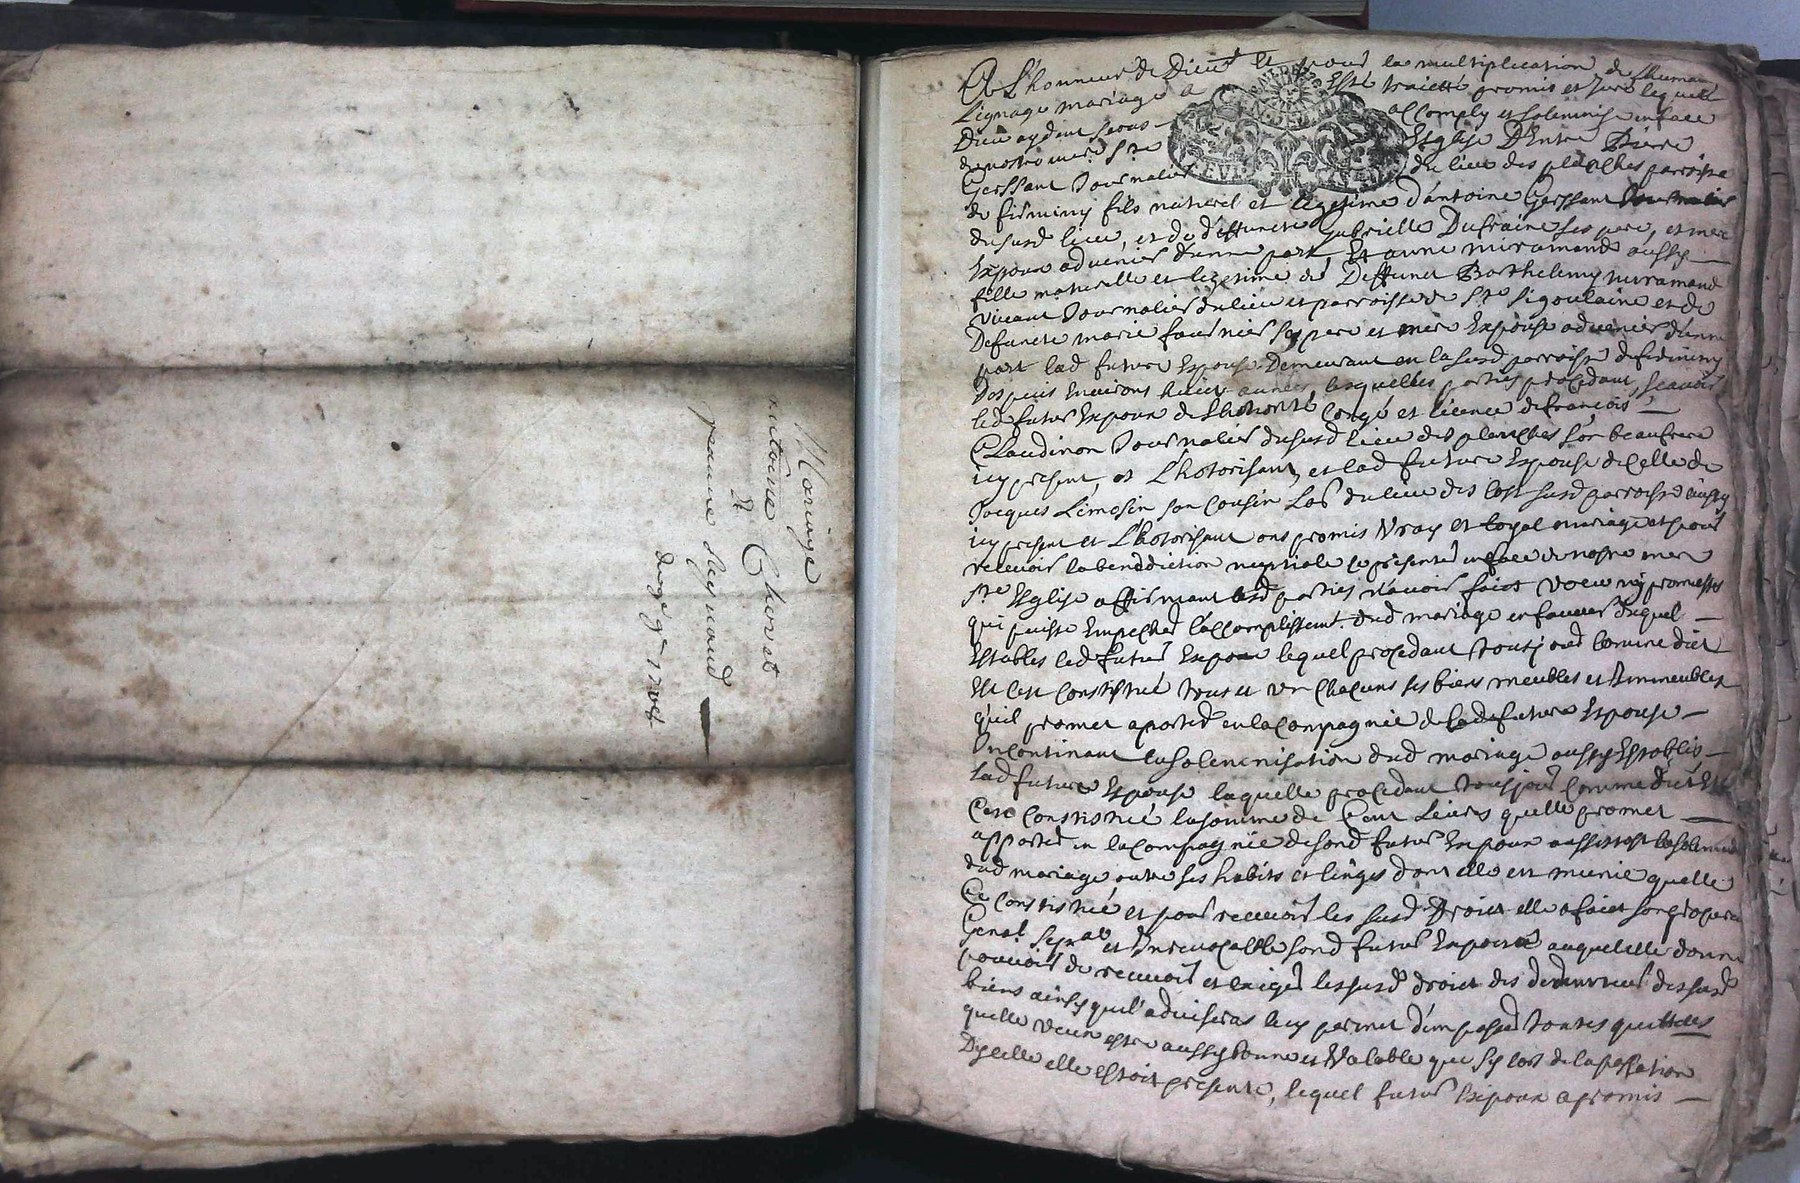 Mariage
antoine Chovet
&
jeanne Seymond
A Lhonneur de Dieu Et pour la multiplication de lhumain
Lignage mariage a Esté traicté promis et juré lequel
Dieu aydant seras accomply et solemnisé en face
de nostre mere Ste Esglise D'Entre Pierre
Gerssant Journalier du lieu des planches parroisse
de firminy fils naturel et legitime d'antoine Gerssant Journalier
dususd lieu, et de deffuncte Gabrielle Dufraine ses pere, et mere
Expoux advenier d'une part, Et anne miramande aussy
fille naturelle et legitime de Deffunct Barthelemy miramand
vivant Journalier du lieu et parroisse de Ste Sigoulaine et de
Defuncte marie fournier ses pere et mere Expouse advenier d'une
part lad future Expouse Demeurant en la susd parroisse de firminy
Despuis Environs huict années lesquelles parties procedant, scavoir
led futur Expoux de Lhotorité congé et licence de françois
Claudinon Journalier dususd lieu des planches son beaufrere
icy present, et Lhotorisant, et lad future Expouse de Celle de
Jacques Limosin son Cousin du lieu des susd parroisse aussy
icy present et Lhotorisant ont promis vray et loyal mariage et pour
recevoir la benediction nuptiale se presenter en face de nostre mere
Ste Esglise affirmant lesd parties n'avoir faict voeu ny promesses
qui puisse Empecher l'accomplissemt. dud mariage en faveur duquel
Establis led futur Expoux lequel procedant tousjour comme dict
Est cest Constitué tous et un chacuns ses biens meubles et Immeubles
qu'il promet aporter en la Compagnie de lad future Expouse
Incontinant la solemnisation dud mariage aussy Establie
lad future Expouse laquelle procedant tousjour Comme dict Est
Cest Constitué la somme de Cent Livres quelle promet
apporter en la Compagnie de sond futur Expoux aussitost la solemnité
dud mariage outre ses habits et linges dont elle est munie quelle
Ce Constitué et pour recevoir les susd Droict elle a faict son procureur
Genal specal et Inrevocable sond futur Expoux auquel elle donne
pouvoir de recevoir et exiger les susd droict des debiteurs des susd
biens ainsy quil adviseras luy permet d'en passer toutes quittances
quelle veux estre aussy bonne et Valable que sy lors de la passation
Dycelle elle estoit presente, lequel futur Expoux a promis